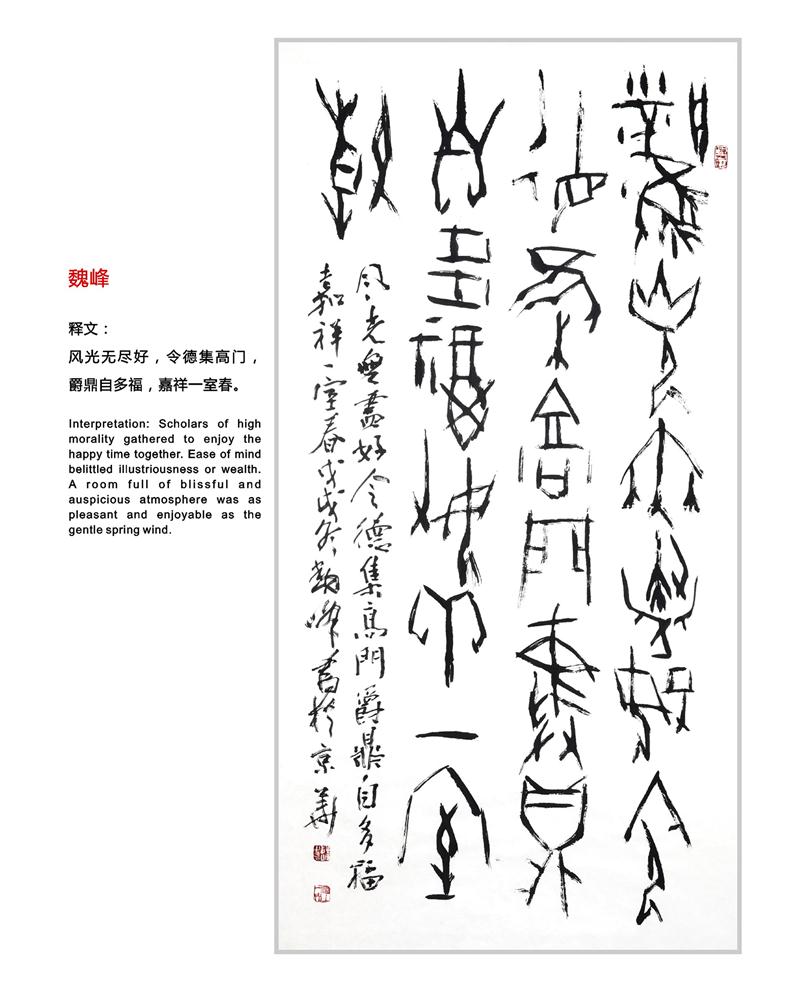 魏峰
释文：
风光无尽好，令德集高门，
爵鼎自多福，嘉祥一室春。
Interpretation: Scholars of high
morality gathered to enjoy the
happy time together. Ease of mind
belittled illustriousness or wealth.
A room full of blissful and
auspicious atmosphere was as
pleasant and enjoyable as the
gentle spring wind.
風光無盡好令德集高門爵鼎自多福
嘉祥一室春戊戌冬魏峰書於京華